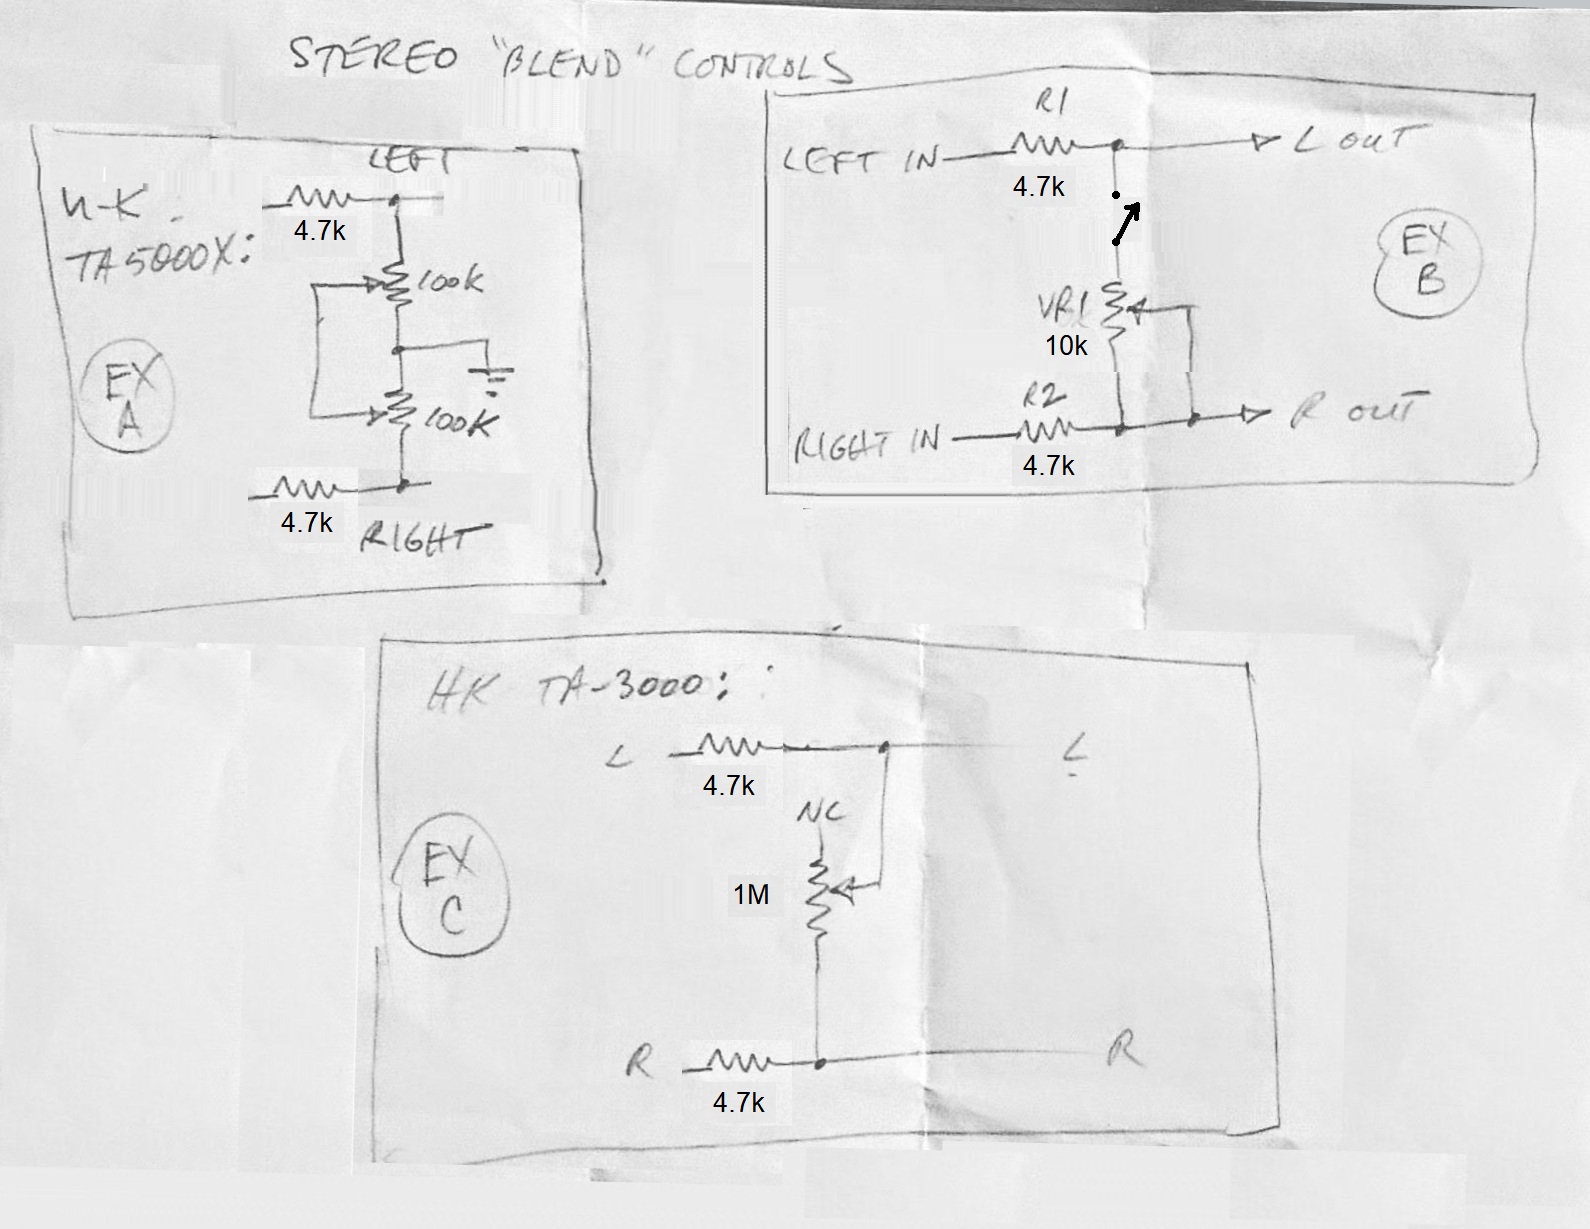 STEREO "BLEND" CONTROLS
H-K
TA5000X:
EX
A
LEFT
4.7k
100K
100K
4.7k
RIGHT
R1
LEFT IN
L OUT
4.7k
EX
B
VR1
10k
R2
RIGHT IN
R OUT
4.7k
HK TA-3000:
L
L
4.7k
NC
EX
C
1M
R
R
4.7k